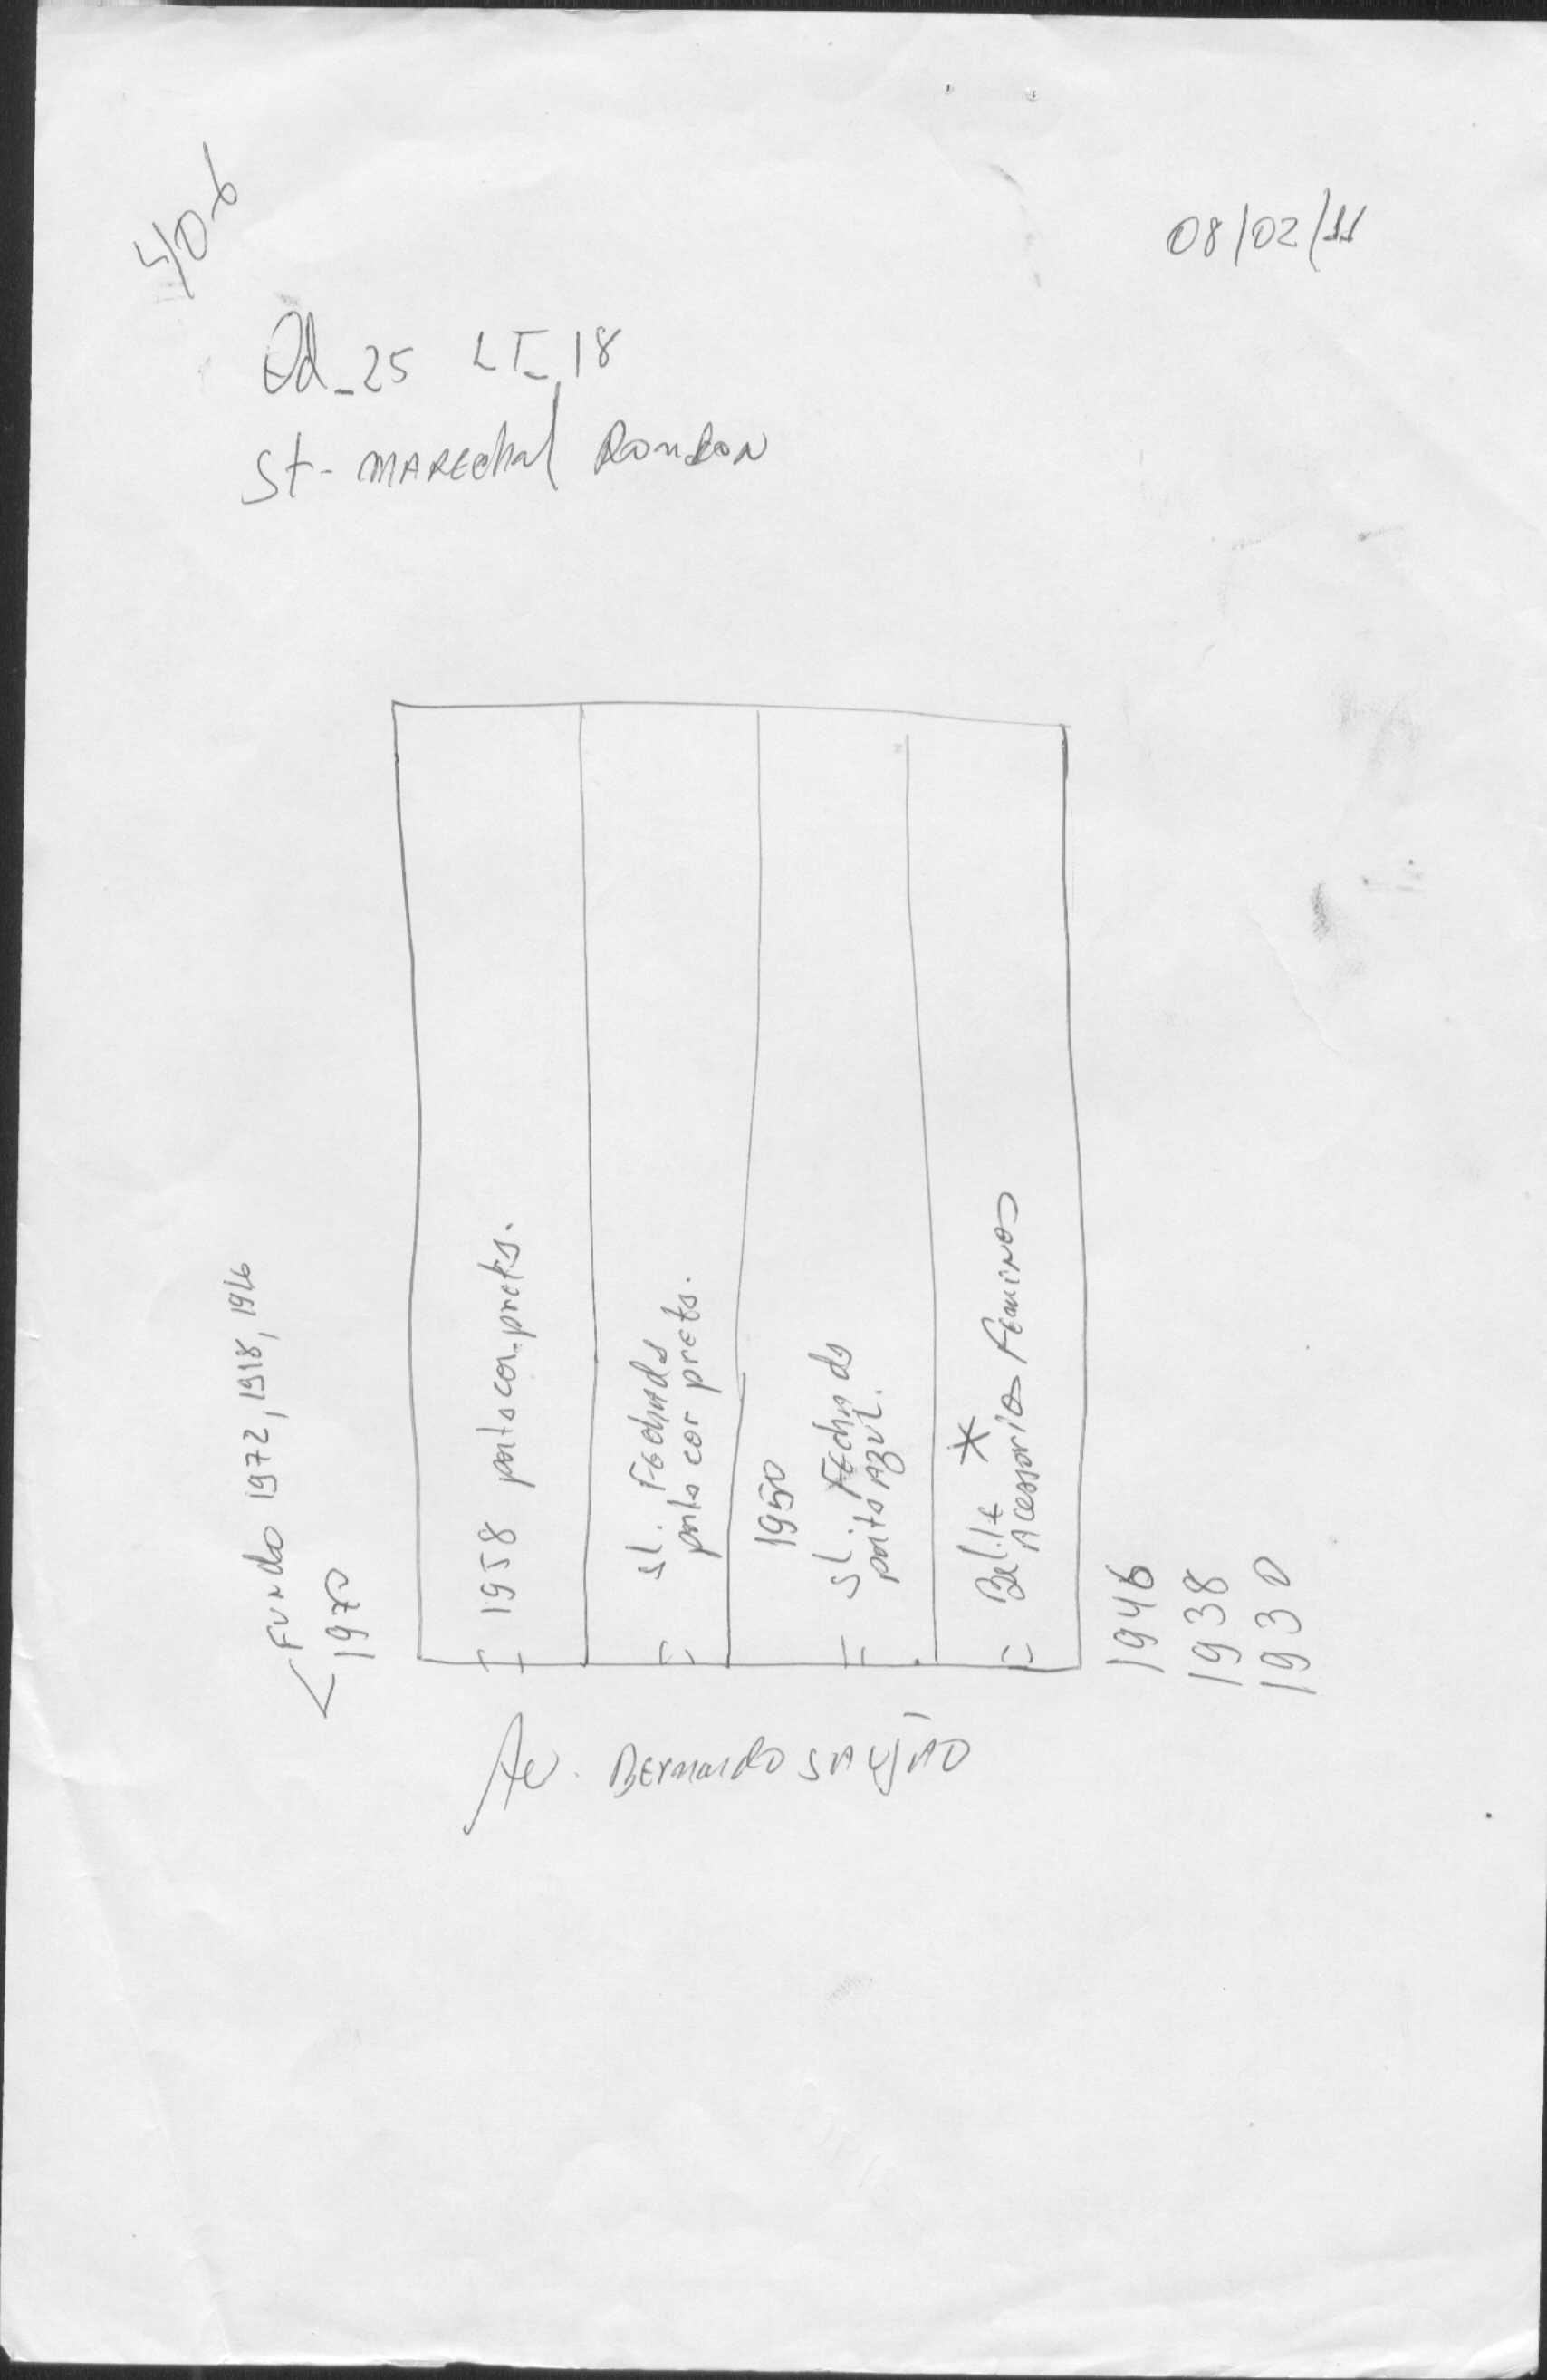 08/02/11
Qd_25 LT_18
St - MAREchal RONDON
FUNDO 1972, 1918, 1916
1970
1958 porta cor preta.
sl. Fechada
porta cor preta.
1950
SL. Fechada
porta AZUL.
Acessorios Femininos
1946
1938
1930
Av. BERNARDO SAYÃO